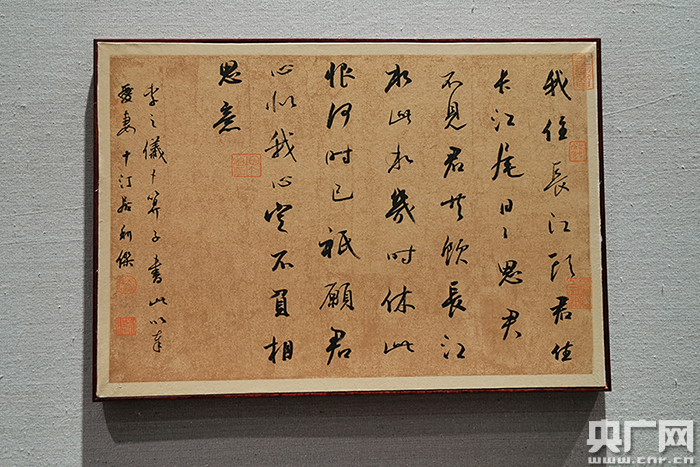 我住長江頭君住
长江尾日〻思君
不見君共飲長江
水此水幾时休此
恨何时已祇願君
心似我心定不負相
思意
李之儀卜算子書此以奉
愛妻十汀居
央广网
www.cnr.cn